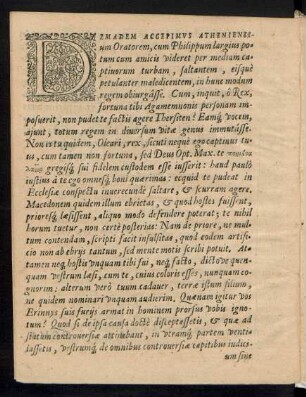 DEMADEM ACCEPIMVS ATHENIENSI-
um Oratorem, cum Philippum largius po-
tum cum amicis videret per mediam ca-
ptivorum turbam, saltantem, eisq́ue
petulanter maledicentem, in hunc modum
regem obiurgâsse. Cum, inquit, ô Rex,
fortuna tibi Agamemnonis personam im-
posuerit, non pudet te factis agere Thersiten? Eamq́; vocem,
ajunt, totum regem in diversum vitæ genus immutâsse.
Non ertu quidem, rex, sicuti neque ego captivus tu-
us, cum tamen non fortuna, sed Deus Opt. Max. te
gregisq́; sui fidelem custodem esse iusserit: haud paulò
iustius à te ego omnesq́; boni quærimus: ecquid te pudeat in
Ecclesiæ conspectu inverecundè saltare, & scurram agere.
Macedonem quidem illum ebrietas, & quod hostes fuissent,
prioresq́; læsissent, aliquo modo defendere poterat; te nihil
horum tuetur, non certè posterius: Nam de priore, ne mul-
tum contendam, scripti facit insulsitas, quod eodem artifi-
cio non ab ebrijs tantùm, sed mente motis scribi potuit. At-
tamen neq́; hostis vnquam tibi fui, neq́; facto, dictove quen-
quam vestrûm læsi, cum te, cuius coloris esses, nunquam co-
gnorim: alterum verò tuum cadaver, terræ istum filium,
ne quidem nominari vnquam audierim. Quænam igitur vos
Erinnys suis furijs armat in hominem prorsus vobis igno-
tum? Quòd si de ipsa causa doctè disceptassetis, & quæ ad
statum controversiæ attinebant, in vtramq́; partem venti-
lassetis, vestrumq́; de omnibus controversiæ capitibus iudici-
um sine